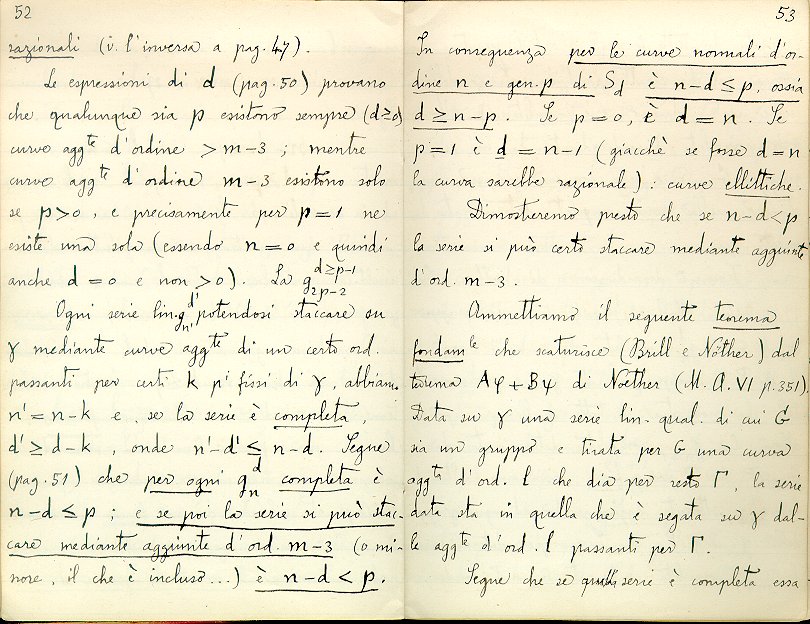 52
razionali (v. l'inversa a pag. 47).
Le espressioni di d (pag. 50) provano
che qualunque sia p esistono sempre (d≥0)
curve agg^te d'ordine > m-3 ; mentre
curve agg^te d'ordine m-3 esistono solo
se p>0, e precisamente per p=1 ne
esiste una sola (essendo n=0 e quindi
anche d=0 e non >0). La g_{2p-2}^{d≥p-1}
Ogni serie lin. g_{n'}^{d'} potendosi staccare su
γ mediante curve agg^te di un certo ord.
passanti per certi k p^i fissi di γ, abbiam.
n'=n-k e, se la serie è completa,
d'≥d-k, onde n'-d'≤n-d. Segue
(pag. 51) che per ogni g_n^d completa è
n-d≤p; e se poi la serie si può stac-
care mediante aggiunte d'ord. m-3 (o mi-
nore, il che è incluso...) è n-d<p.
53
In conseguenza per le curve normali d'or-
dine n e gen. p di S_d è n-d≤p, ossia
d≥n-p. Se p=0, è d=n. Se
p=1 è d=n-1 (giacchè se fosse d=n
la curva sarebbe razionale): curve ellittiche.
Dimostreremo presto che se n-d<p
la serie si può certo staccare mediante aggiunte
d'ord. m-3.
Ammettiamo il seguente teorema
fondam^le che scaturisce (Brill e Nöther) dal
teorema Aφ+Bψ di Noether (M.A. VI p. 351).
Data su γ una serie lin. qual. di cui G
sia un gruppo e tirata per G una curva
agg^ta d'ord. l che dia per resto Γ, la serie
data sta in quella che è segata su γ dal-
le agg^te d'ord. l passanti per Γ.
Segue che se quella serie è completa essa